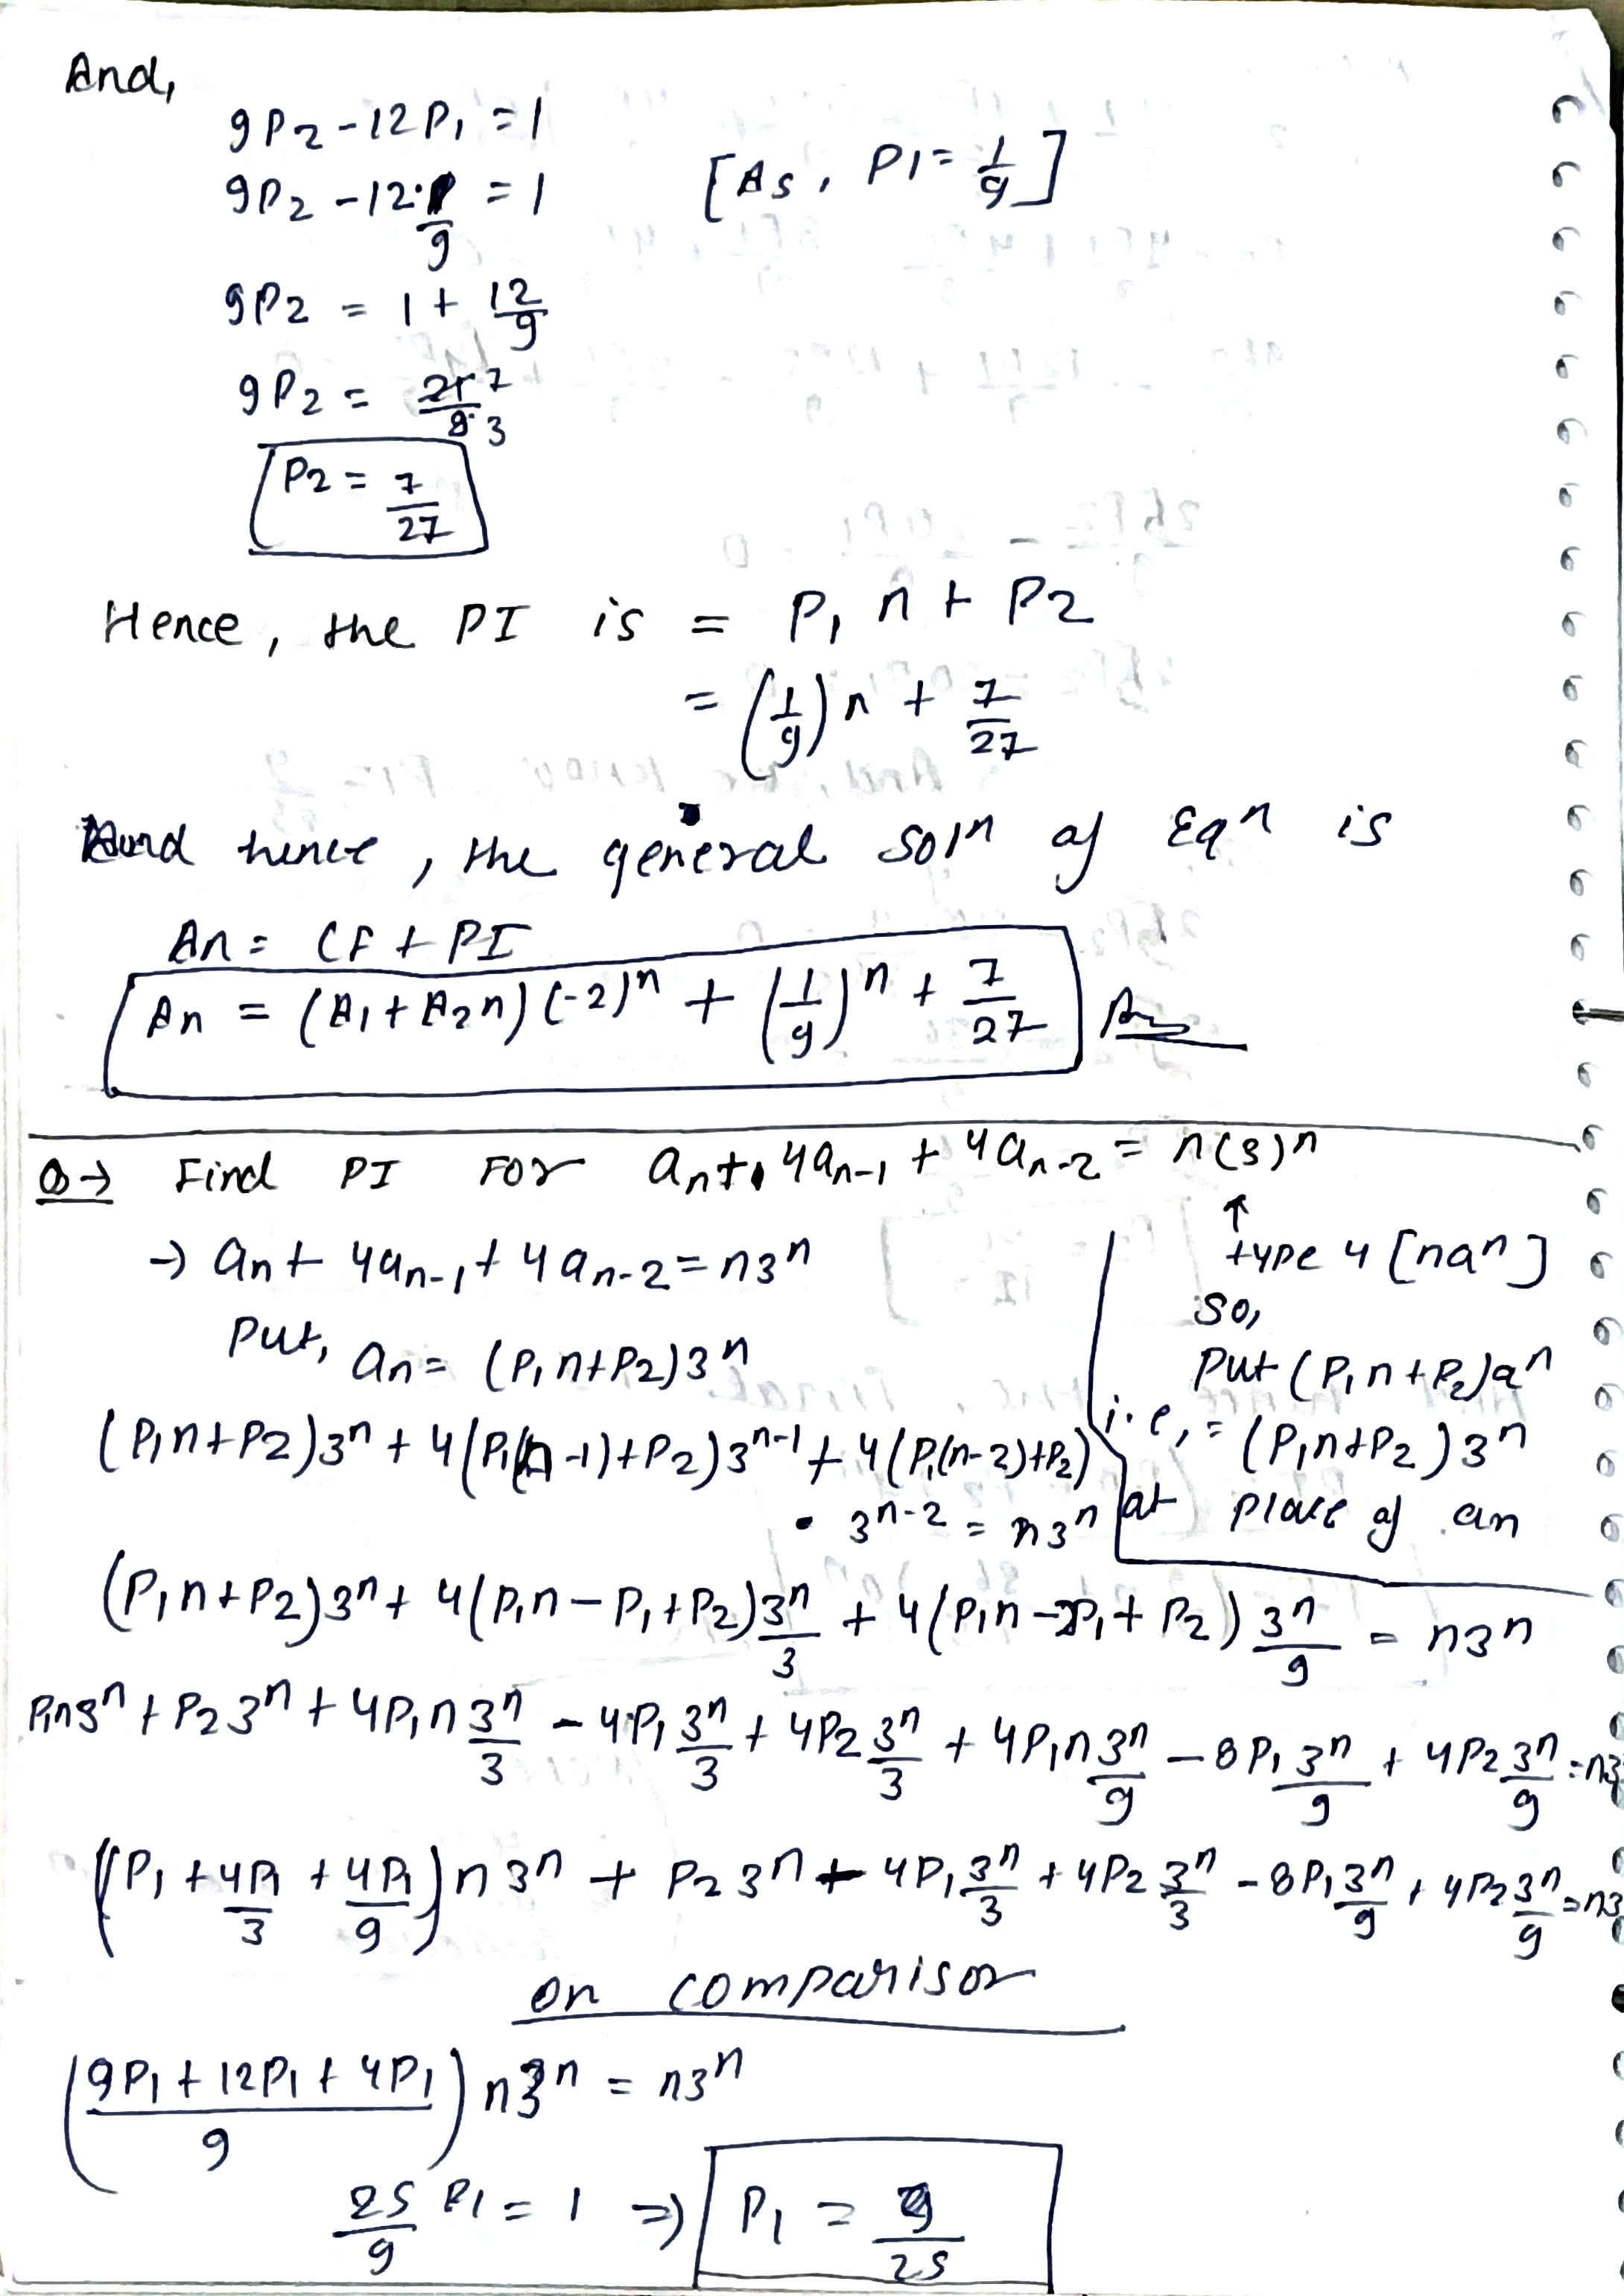 And,
9P2 - 12P1 = 1
9P2 - 12·1/9 = 1 [As, P1 = 1/9]
9P2 = 1 + 12/9
9P2 = 21/9 7/3
P2 = 7/27
Hence, the PI is = P1 n + P2
= (1/9) n + 7/27
And hence, the general solⁿ of Eqⁿ is
An = CF + PI
An = (A1 + A2n) (-2)ⁿ + (1/9) n + 7/27 Ans
Q→ Find PI For an + 4an-1 + 4an-2 = n(3)ⁿ
↑
→ an + 4an-1 + 4an-2 = n3ⁿ
type 4 [naⁿ]
so,
Put, an = (P1n+P2)3ⁿ
Put (P1n+P2)aⁿ
i.e, = (P1n+P2)3ⁿ
at place of an
(P1n+P2)3ⁿ + 4(P1(n-1)+P2)3ⁿ⁻¹ + 4(P1(n-2)+P2)
· 3ⁿ⁻² = n3ⁿ
(P1n+P2)3ⁿ + 4(P1n-P1+P2)3ⁿ/3 + 4(P1n-2P1+P2) 3ⁿ/9 = n3ⁿ
P1n3ⁿ + P2 3ⁿ + 4P1n 3ⁿ/3 - 4P1 3ⁿ/3 + 4P2 3ⁿ/3 + 4P1n 3ⁿ/9 - 8P1 3ⁿ/9 + 4P2 3ⁿ/9 = n3
(P1 + 4P1/3 + 4P1/9) n 3ⁿ + P2 3ⁿ - 4P1 3ⁿ/3 + 4P2 3ⁿ/3 - 8P1 3ⁿ/9 + 4P2 3ⁿ/9 = n3
on comparison
(9P1 + 12P1 + 4P1 / 9) n3ⁿ = n3ⁿ
25/9 P1 = 1 ⇒ P1 = 9/25